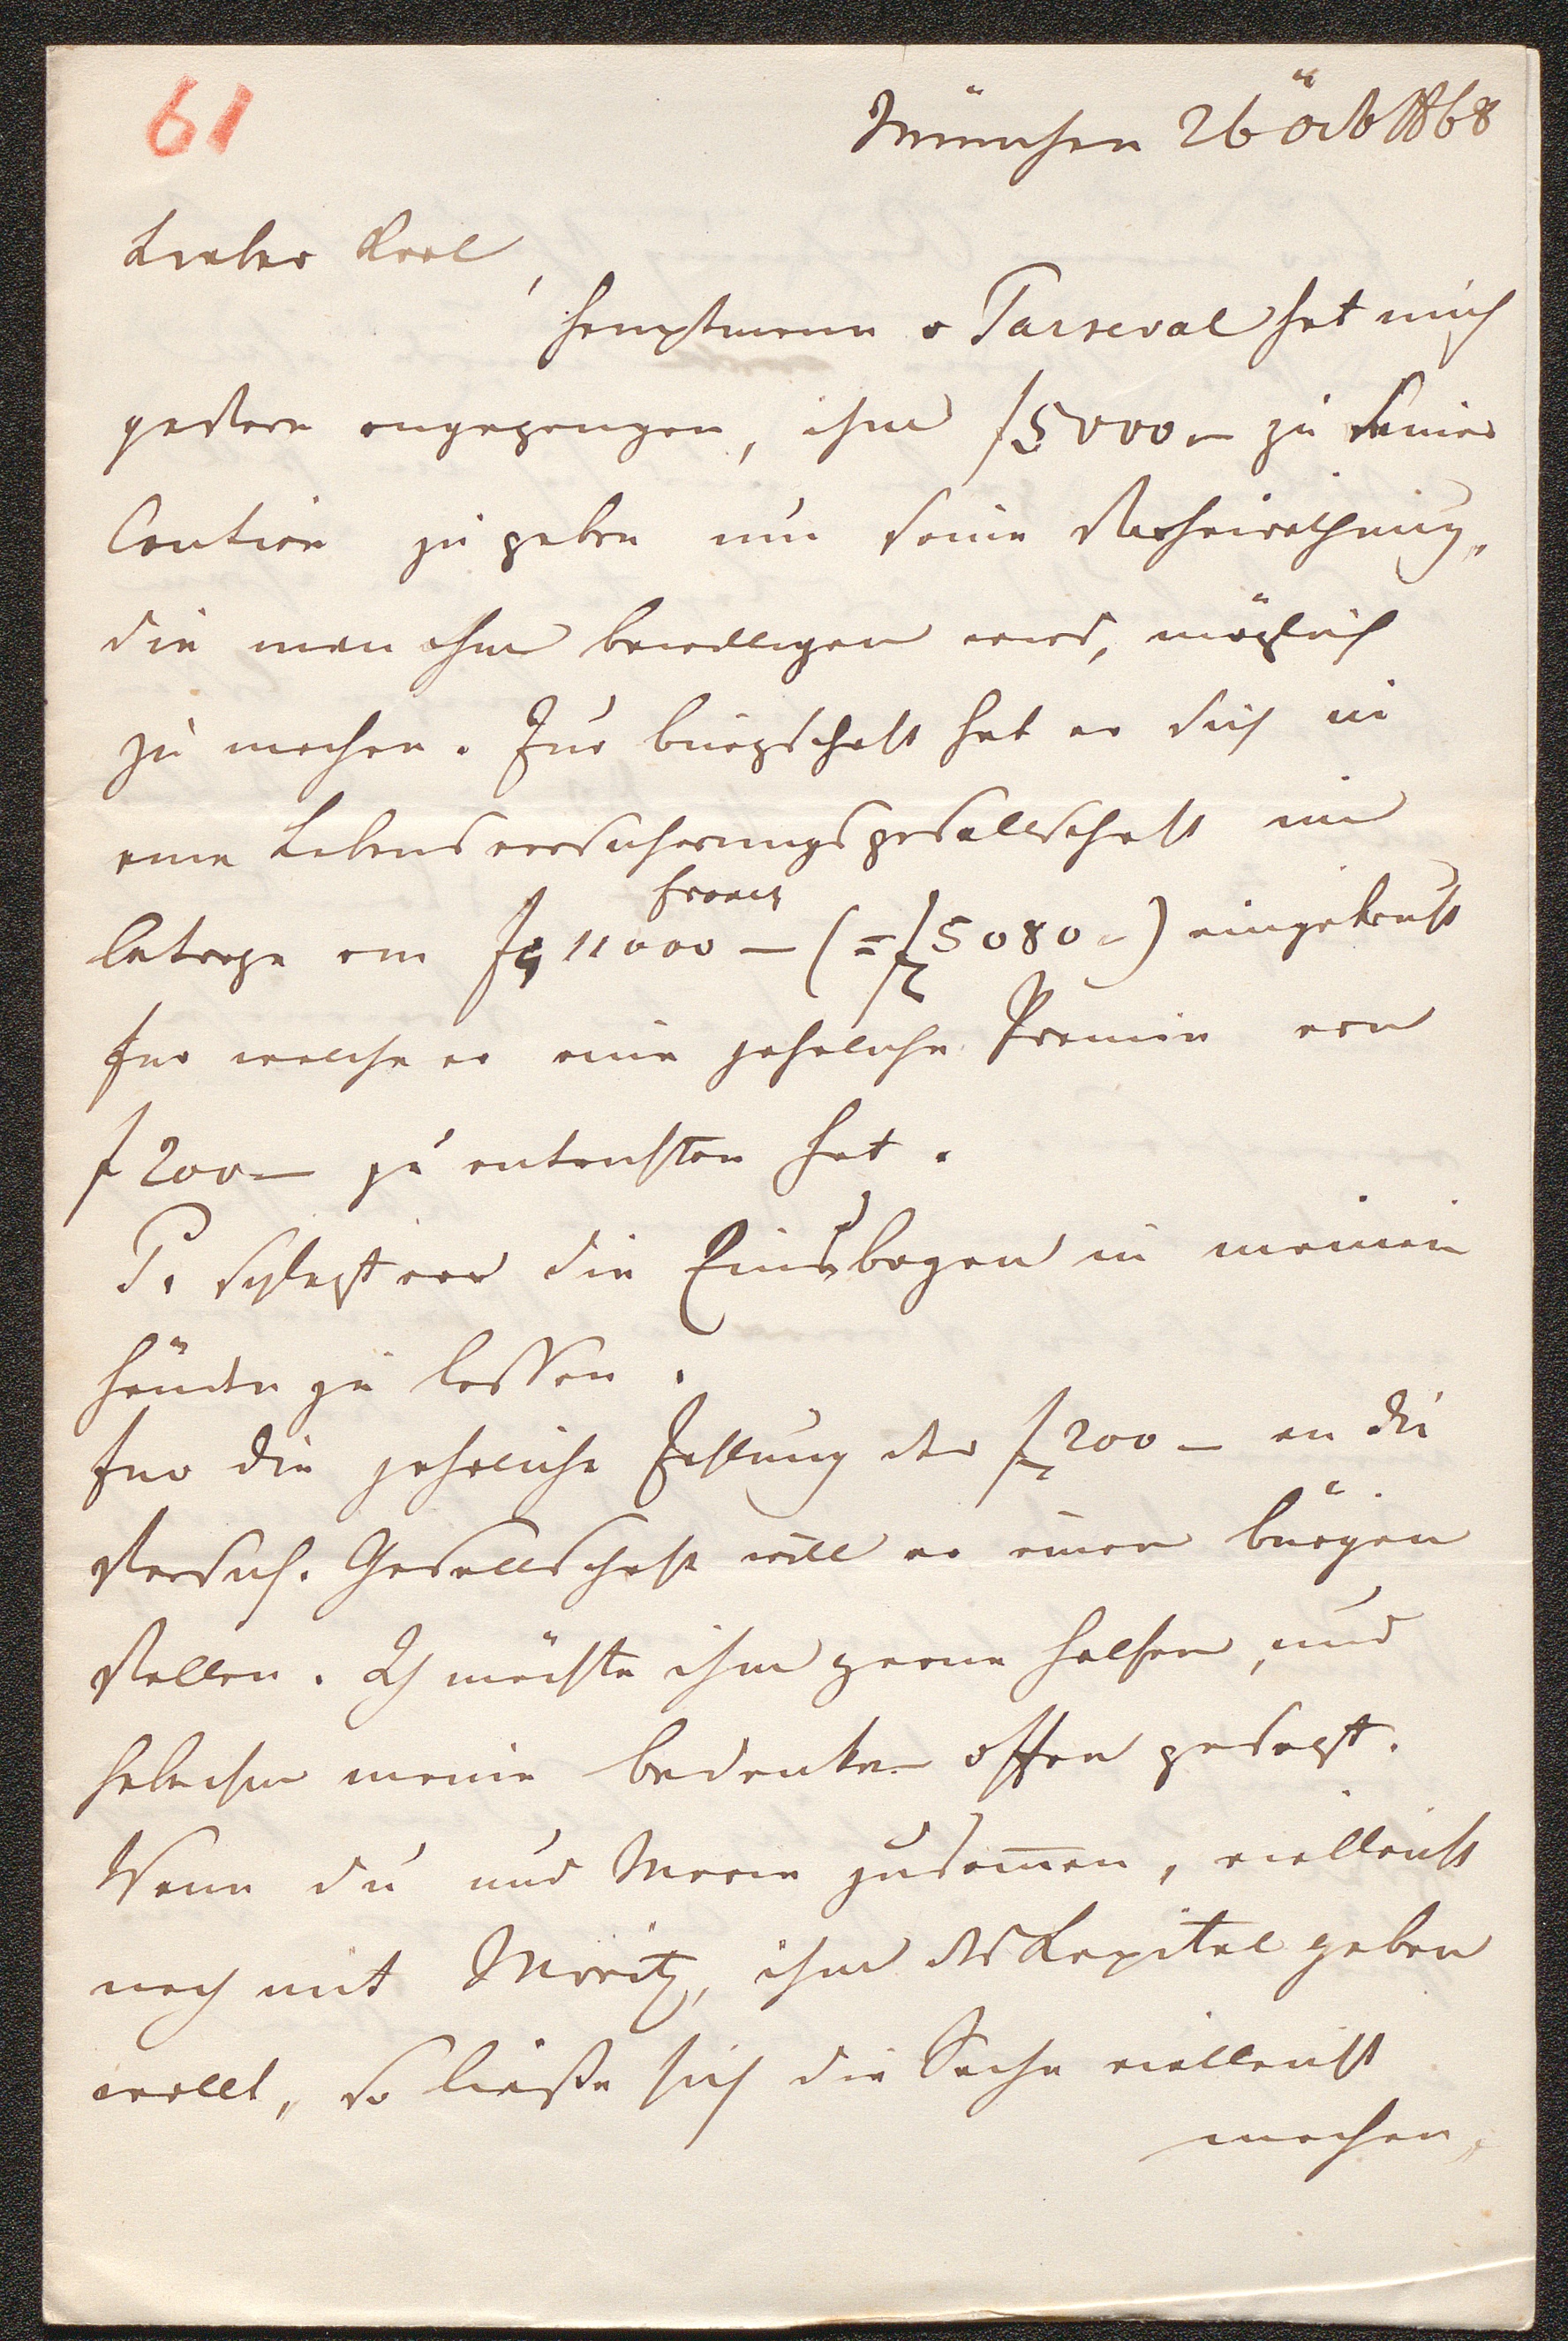 61
München 26 Oct 1868
Lieber Karl,
Hauptmann v Parseval hat mich
gestern angegangen, ihm f 5000 – zu seiner
Caution zu geben um seine Verheirathung,
die man ihm bewilligen wird, möglich
zu machen. Zur bürgschaft hat er sich in
eine Lebensversicherungsgesellschaft im
francs
betrage von 11000 – (= f 5080 –) eingekauft
fur welche er eine jahrliche Premie von
f 200 – zu entrichten hat.
P. schlagt vor die Zinsbogen in meinen
Händen zu lassen.
Fur die jahrliche Zahlung der f 200 – an die
Versich. Gesellschaft will er einen bürgen
stellen. Ich möchte ihm gerne helfen, und
habe ihm meine bedenken offen gesagt.
Wenn du und Marie zusam̄en, vielleicht
noch mit Moritz, ihm das Kapital geben
wollt, so ließe sich die Sache vielleicht
machen,